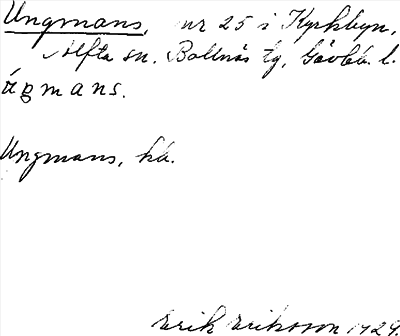 Ungmans, nr 25 i Kyrkbyn,
Alfta sn. Bollnäs tg, Gävleb. l.
ágmans.
Ungmans, hd.
Erik Eriksson 1929.